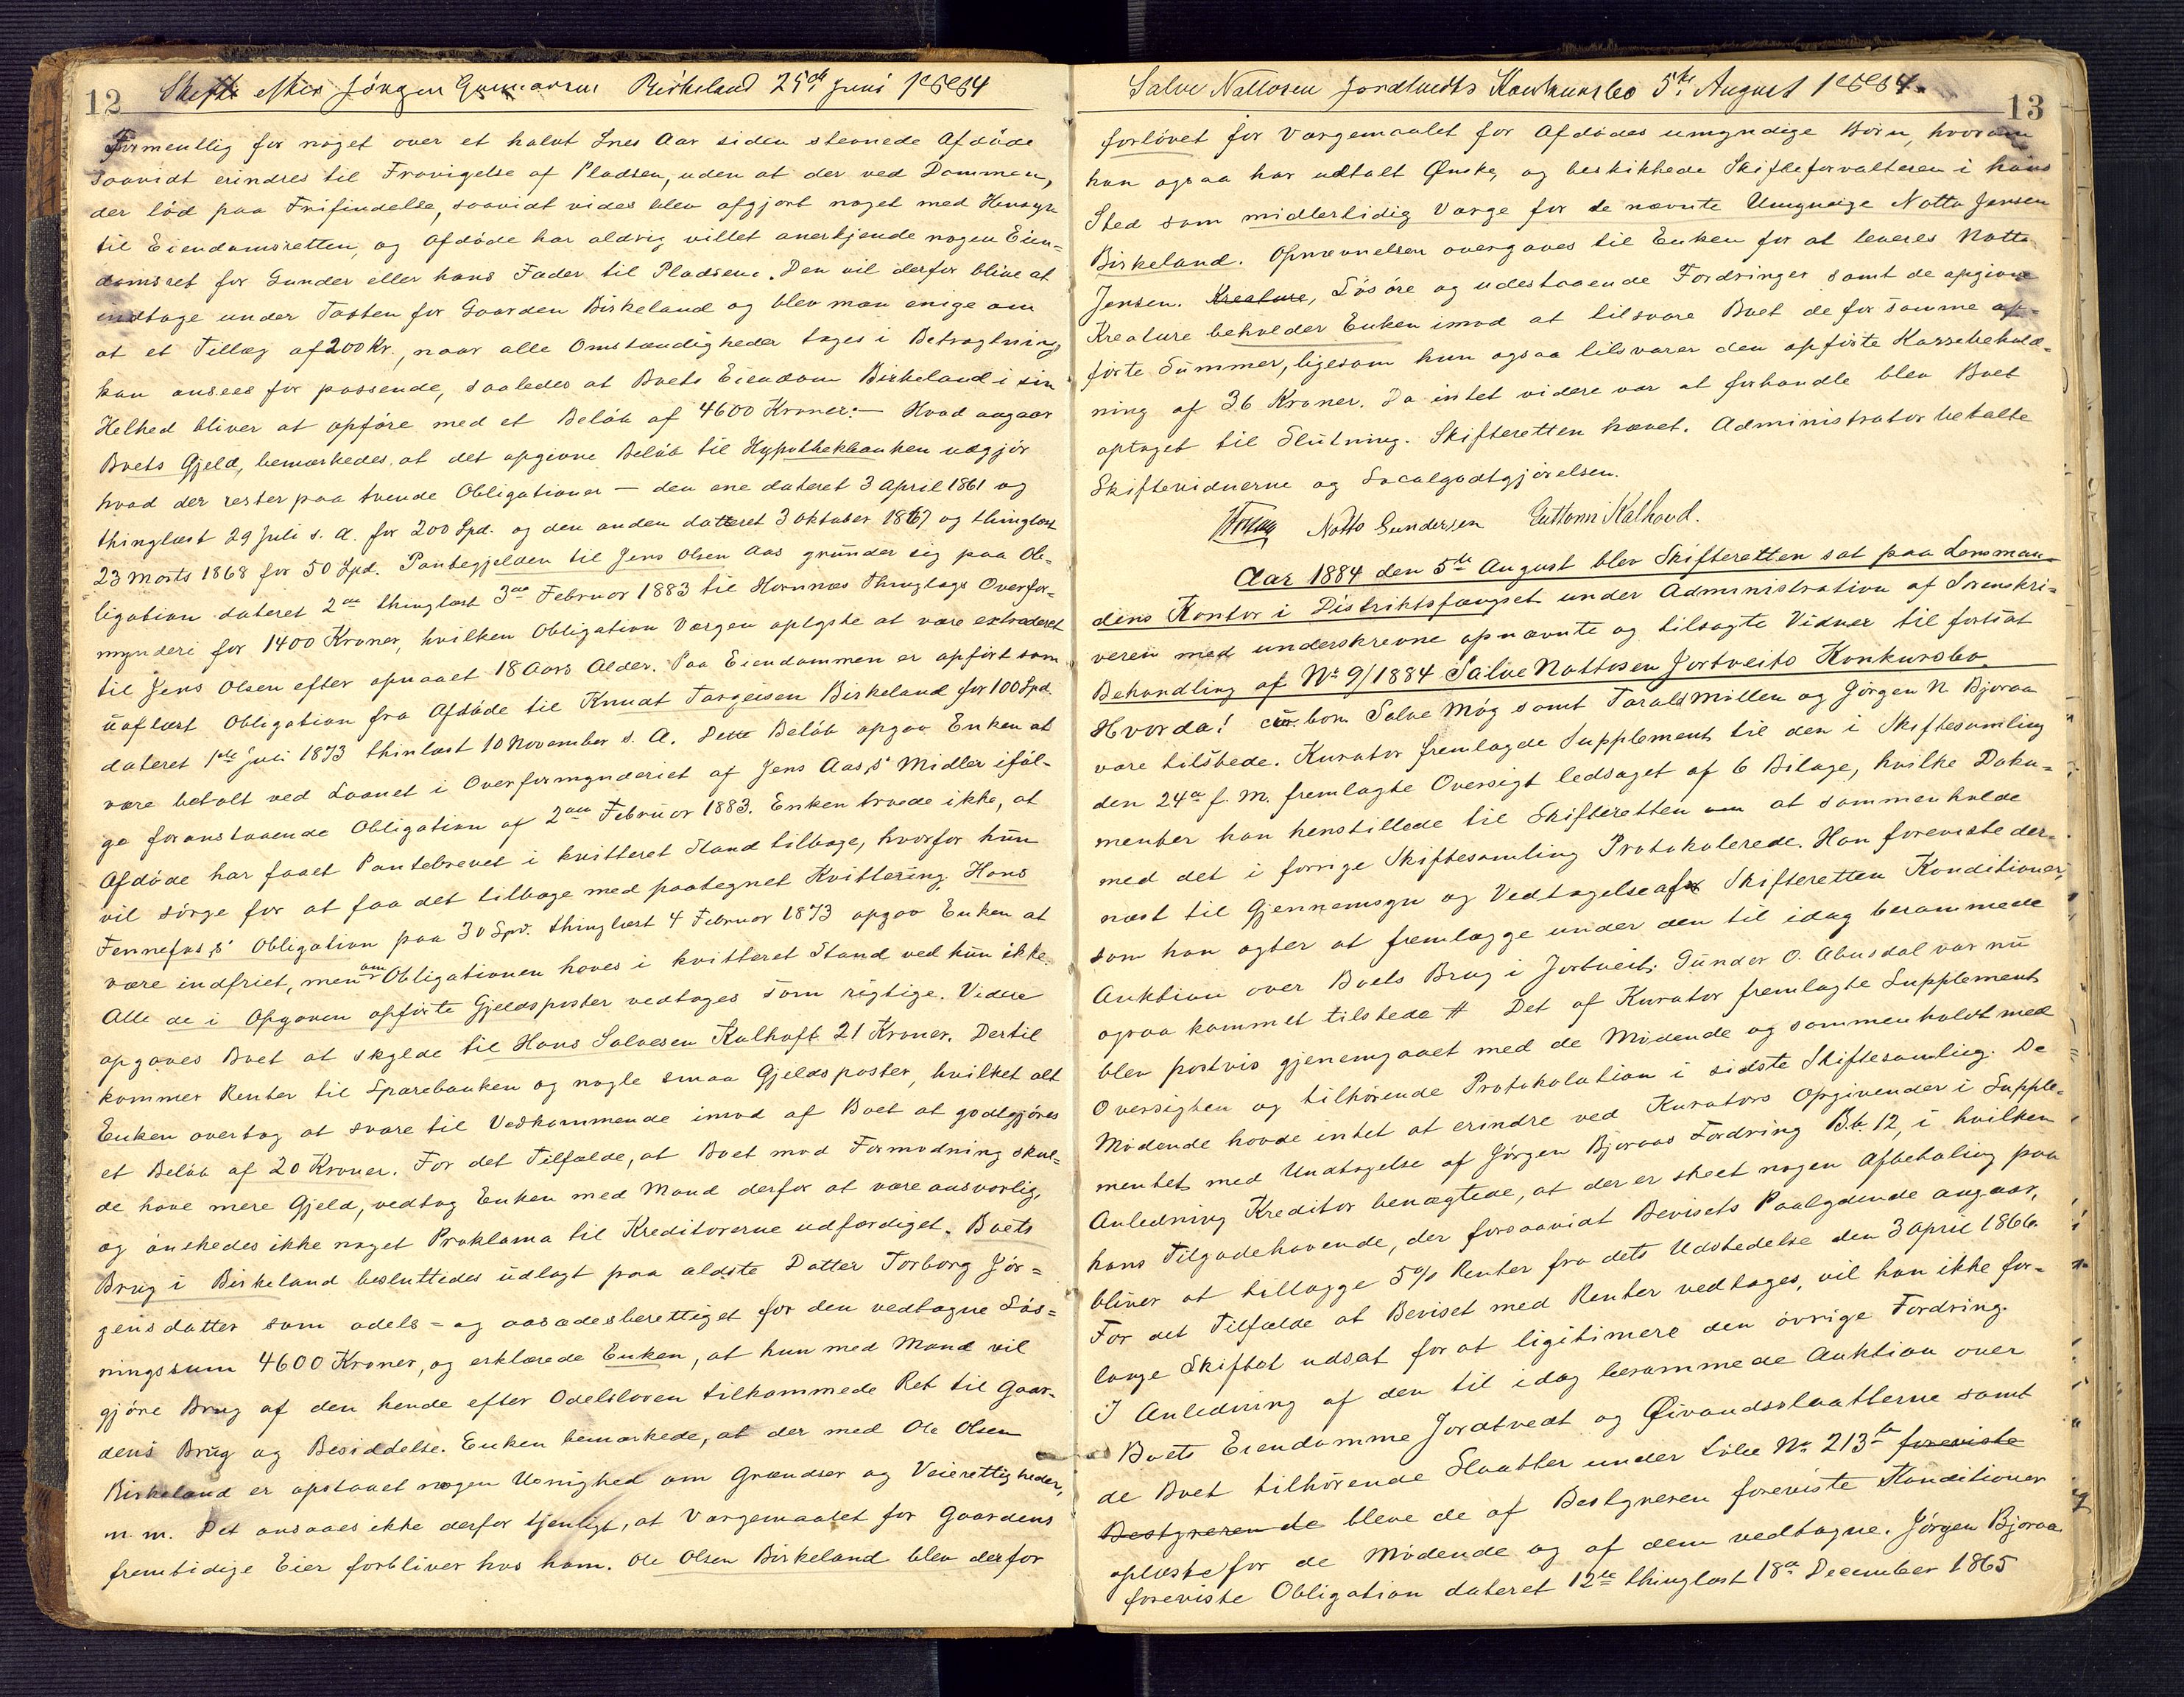 12 Skifte efter Jörgen Gunnarsen Birkeland 25de Juni 1884
Formentlig for noget over et halvt Snes Aar siden stevnede Afdöde
saavidt erindres til Fravigelse af Pladsen, uden at der ved Dommen,
der löd paa Frifindelse, saavidt vides blev afgjort noget med Hensyn
til Eiendomsretten, og Afdöde har aldrig villet anerkjende nogen Eien=
domsret for Gunder eller hans Fader til Pladsene. Den vil derfor blive at
indtage under Taxten for Gaarden Birkeland og blev man enige om
at et Tillæg af 200 Kr., naar alle Omstændigheder tages i Betragtning,
kan ansees for passende, saaledes at Boets Eiendom Birkeland i sin
Helhed bliver at opföre med et Belöb af 4600 Kroner:— Hvad angaar
Boets Gjeld, bemærkedes at det opgivne Belöb til Hypothekbanken udgjör
hvad der rester paa tvende Obligationer — den ene dateret 3 April 1861 og
thinglæst 29 Juli s. A. for 200 Spd. og den anden dateret 3 Oktober 1867 og thinglæst
23 Marts 1868 for 50 Spd. Pantegjelden til Jens Olsen Aas grunder sig paa Ob=
ligation dateret 2den thinglæst 3die Februar 1883 til Hornnæs Thinglags Overfor=
mynderi for 1400 Kroner, hvilken Obligation Værgen oplyste at være extraderet
til Jens Olsen efter opnaaet 18 Aars Alder. Paa Eiendommen er opfört som
uaflæst Obligation fra Afdöde til Knud Targeisen Birkeland for 100 Spd.
dateret 1ste Juli 1873 thinlæst 10 November s. A. Dette Belöb opgav Enken at
være betalt ved Laanet i Overformynderiet af Jens Aas,s' Midler iföl=
ge foranstaaende Obligation af 2den Februar 1883. Enken troede ikke, at
Afdöde har faaet Pantebrevet i kvitteret Stand tilbage, hvorfor hun
vil sörge for at faa det tilbage med paategnet Kvittering. Hans
Fennefos,s' Obligation paa 30 Spd. thinglæst 4 Februar 1873 opgav Enken at
være indfriet, men om Obligationen haves i kvitteret Stand ved hun ikke.
Alle de i Opgaven opförte Gjeldsposter vedtages som rigtige. Videre
opgaves Boet at skylde til Hans Salvesen Kalhoft 21 Kroner. Dertil
kommer Renter til Sparebanken og nogle smaa Gjeldsposter, hvilket alt
Enken overtog at svare til Vedkommende imod af Boet at godtgjöres
et Belöb af 20 Kroner. For det Tilfælde, at Boet mod Formodning skul=
de have mere Gjeld, vedtog Enken med Mand derfor at være ansvarlig,
og önskedes ikke noget Proklama til Kreditorerne udfærdiget. Boets
Brug i Birkeland besluttedes udlagt paa ældste Datter Torborg Jör=
gensdatter som odels= og aasædesberettiget for den vedtagne Lös=
ningssum 4600 Kroner, og erklærede Enken, at hun med Mand vil
gjöre Brug af den hende efter Odelsloven tilkommede Ret til Gaar=
dens Brug og Besiddelse. Enken bemærkede, at der med Ole Olsen
Birkeland er opstaaet nogen Uenighed om Grændser og Veierettigheder,
m. m. Det ansaaes ikke derfor tjenligt, at Værgemaalet for Gaardens
fremtidige Eier forbliver hos ham. Ole Olsen Birkeland blev derfor
Salve Nattosen Jordtvedts Konkursbo 5te August 1884. 13
forlövet for Værgemaalet for Afdödes umyndige Börn, hvorom
han ogsaa har udtalt Önske, og beskikkede Skifteforvalteren i hans
Sted som midlertidig Værge for de nævnte Umyndige Notto Jensen
Birkeland. Opnævnelsen overgaves til Enken for at leveres Notto
Jensen. Kreature, Lösöre og udestaaende Fordringer samt de opgivne
Kreature beholder Enken imod at tilsvare Boet de for samme op=
förte Summer, ligesom hun ogsaa tilsvarer den opförte Kassebehold=
ning af 36 Kroner. Da intet videre var at forhandle blev Boet
optaget til Slutning. Skifteretten hævet. Administrator betalte
Skiftevidnerne og Localgodtgjörelsen.
Notto Gundersen Guttorm Kalhovd.
Aar 1884 den 5te August blev Skifteretten sat paa Lensman=
dens Kontor i Distriktsfængset under Administration af Sorenskri=
veren med underskrevne opnævnte og tilsagte Vidner til fortsat
Behandling af No 9/1884 Salve Nattosen Jortveits Konkursbo.
Hvorda! cur.bon Salve Mög samt Tarald Möllen og Jörgen N Bjoraa
vare tilstede. Kurator fremlagde Supplement til den i Skiftesamling
den 24de f. M. fremlagte Oversigt ledsaget af 6 Bilage, hvilke Doku=
menter han henstillede til Skifteretten om at sammenholde
med det i forrige Skiftesamling Protokolerede. Han foreviste der=
næst til Gjennemsyn og Vedtagelse af Skifteretten Konditioner,
som han agter at fremlægge under den til idag berammede
Auktion over Boets Brug i Jortveit. Gunder O. Abusdal var nu
ogsaa kommet tilstede # Det af Kurator fremlagte Supplement
blev postvis gjenemgaaet med de Mödende og sammenholdt med
Oversigten og tilhörende Protokolation i sidste Skiftesamling. De
Mödende havde intet at erindre ved Kurators Opgivender i Supple=
mentet med Undtagelse af Jörgen Bjoraas Fordring B.b. 12, i hvilken
Anledning Kreditor benægtede, at der er skeet nogen Afbetaling paa
hans Tilgodehavende, der forsaavidt Bevisets Paalydende angaar,
bliver at tillægge 5% Renter fra dets Udstedelse den 3 April 1866.
For det Tilfælde at Beviset med Renter vedtages, vil han ikke for=
lange Skiftet udsat for at ligitimere den övrige Fordring.
I Anledning af den til idag berammede Auktion over
Boets Eiendomme Jordtvedt og Öivandsslaatterne samt
de Boet tilhörende Slaatter under Löbe No 213te foreviste
Bestyreren de bleve de af Bestyreren foreviste Konditioner
oplæste for de Mödende og af dem vedtagne. Jörgen Bjoraa
foreviste Obligation dateret 12te thinglæst 18de December 1865